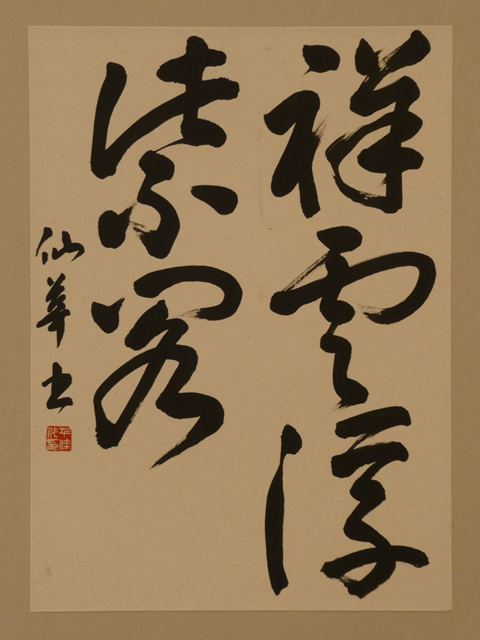 祥雲浮
紫閣
仙華書